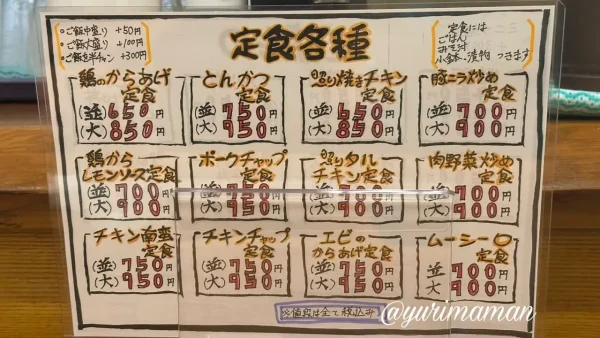 ご飯中盛り +50円
ご飯大盛り +100円
ご飯を半チャン +300円
定食各種
定食には
ごはん
みそ汁
小鉢・漬物 つきます
鶏のからあげ
定食
(並) 650円
(大) 850円
とんかつ
定食
(並) 750円
(大) 950円
照り焼きチキン
定食
(並) 650円
(大) 850円
豚ニラ炒め
定食
(並) 700円
(大) 900円
鶏から
レモンソース定食
(並) 700円
(大) 900円
ポークチャップ
定食
(並) 750円
(大) 950円
照りタル
チキン定食
(並) 700円
(大) 900円
肉野菜炒め
定食
(並) 700円
(大) 900円
チキン南蛮
定食
(並) 750円
(大) 950円
チキンチャップ
定食
(並) 750円
(大) 950円
エビの
からあげ定食
(並) 750円
(大) 950円
ムーシーロ
定食
並 700円
大 900円
※値段は全て税込み
@yurimaman